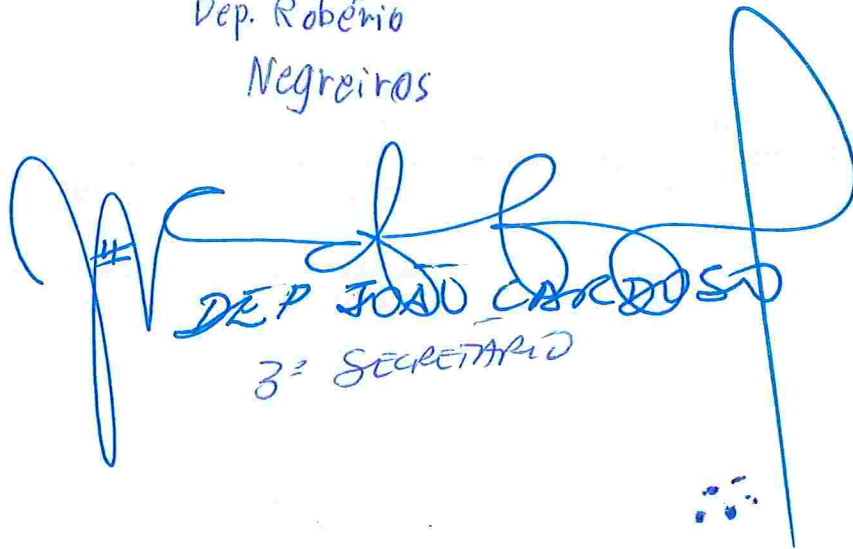 Dep. Robério
Negreiros
DEP JOÃO CARDOSO
3º SECRETÁRIO